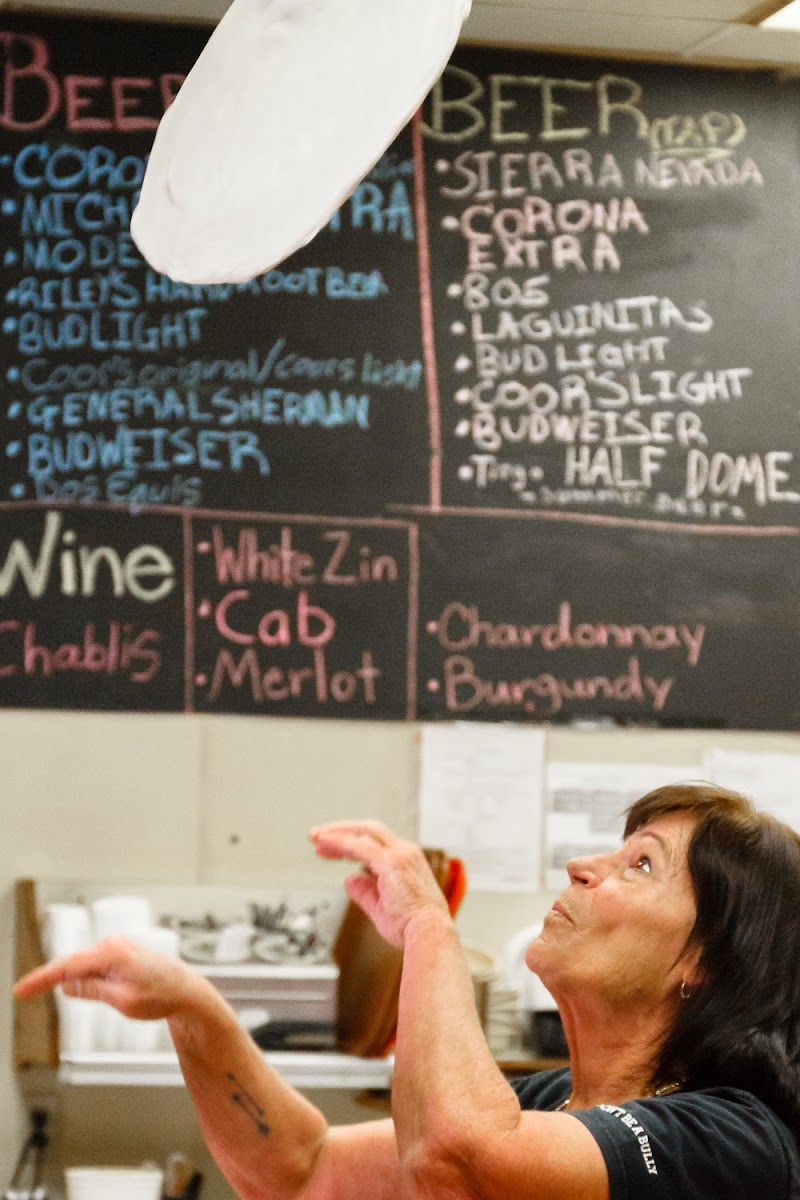 BEER
• CORO
• MICH TRA
• MODE
• RILEY'S HARD ROOT BEA
• BUD LIGHT
• Coor's original/coors light
• GENERAL SHERMAN
• BUDWEISER
• Dos Equis
BEER (TAP)
• SIERRA NEVADA
• CORONA
EXTRA
• 805
• LAGUINITAS
• BUD LIGHT
• COOR'S LIGHT
• BUDWEISER
• Tioga • HALF DOME
~ Summer Beer ~
Wine
Chablis
• White Zin
• Cab
• Merlot
• Chardonnay
• Burgundy
N'T BE A BULLY